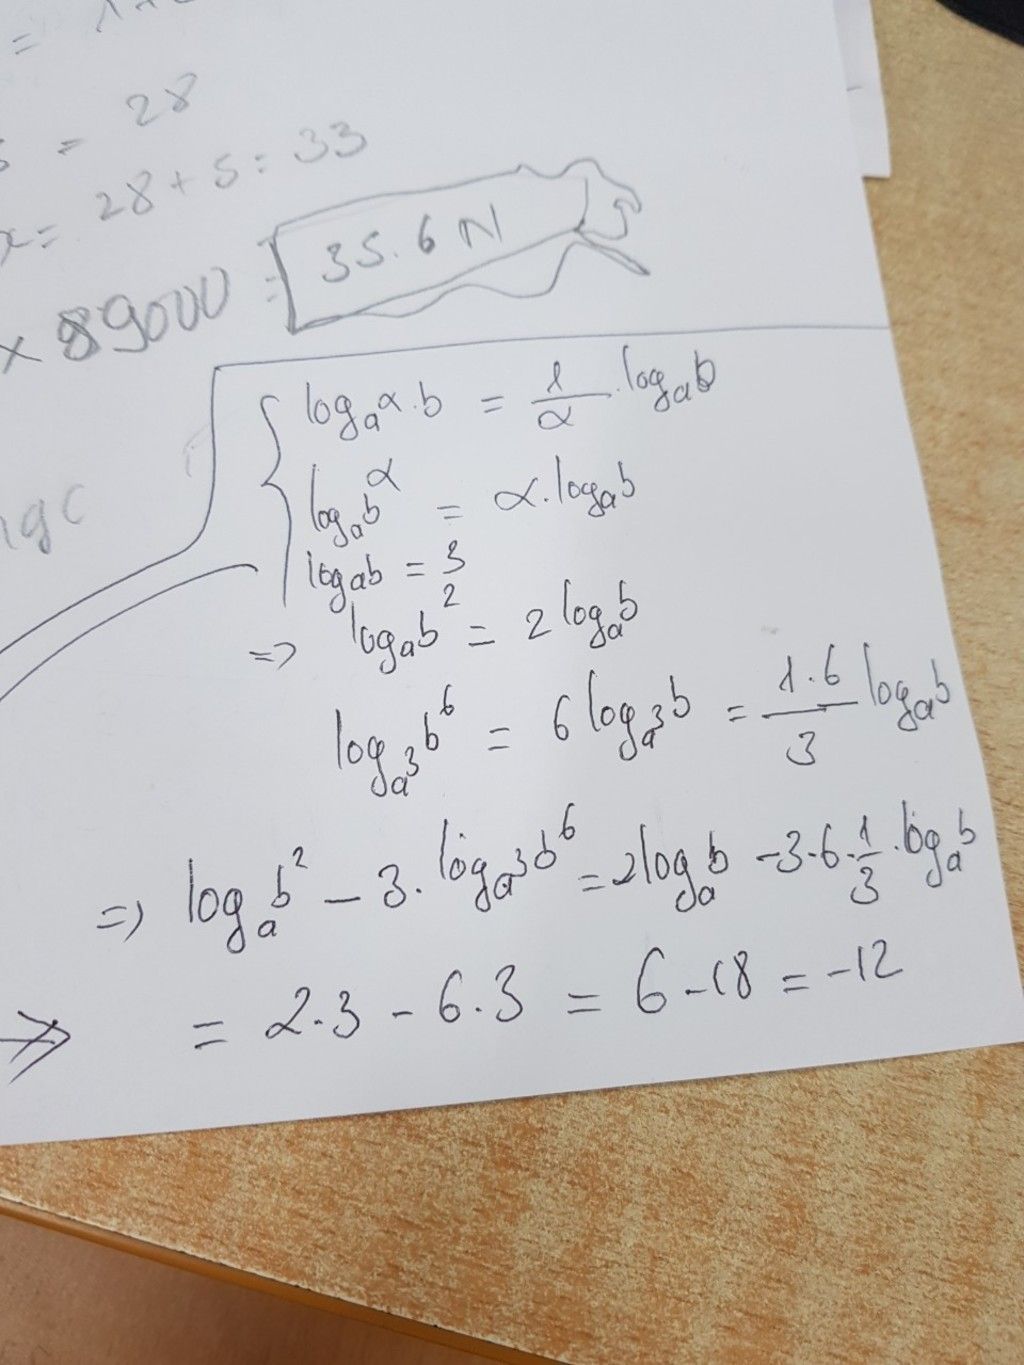 = 28
x = 28 + 5 = 33
x 89000 = 35.6 N
log_{a^α} b = \frac{1}{α} . log_a b
log_a b^α = α . log_a b
log_a b = 3
=> log_a b^2 = 2 log_a b
log_{a^3} b^6 = 6 log_{a^3} b = \frac{1.6}{3} log_a b
=> log_a b^2 - 3 . log_{a^3} b^6 = 2 log_a b - 3.6 . \frac{1}{3} . log_a b
= 2.3 - 6.3 = 6 - 18 = -12